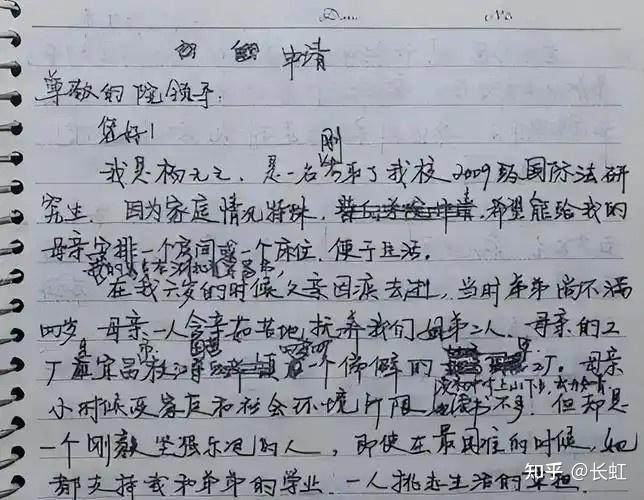 Date No
申请
尊敬的院领导:
您好!
我是杨元元,是一名刚考来了我校2009级国际法研
究生。因为家庭情况特殊,希望能给我的
母亲安排一个房间或一个床位,便于生活。
在我六岁的时候父亲因病去逝,当时弟弟尚不满
四岁,母亲一人含辛茹苦地抚养我们姐弟二人。母亲的工
厂是宜昌市 一个偏僻的 工厂。母亲
小时候受家庭和社会环境所限 读书不多,但却是
一个刚毅坚强乐观的人,即使在最困难的时候,她
都支持我和弟弟的学业,一人挑起生活的重担。
知乎 @长虹